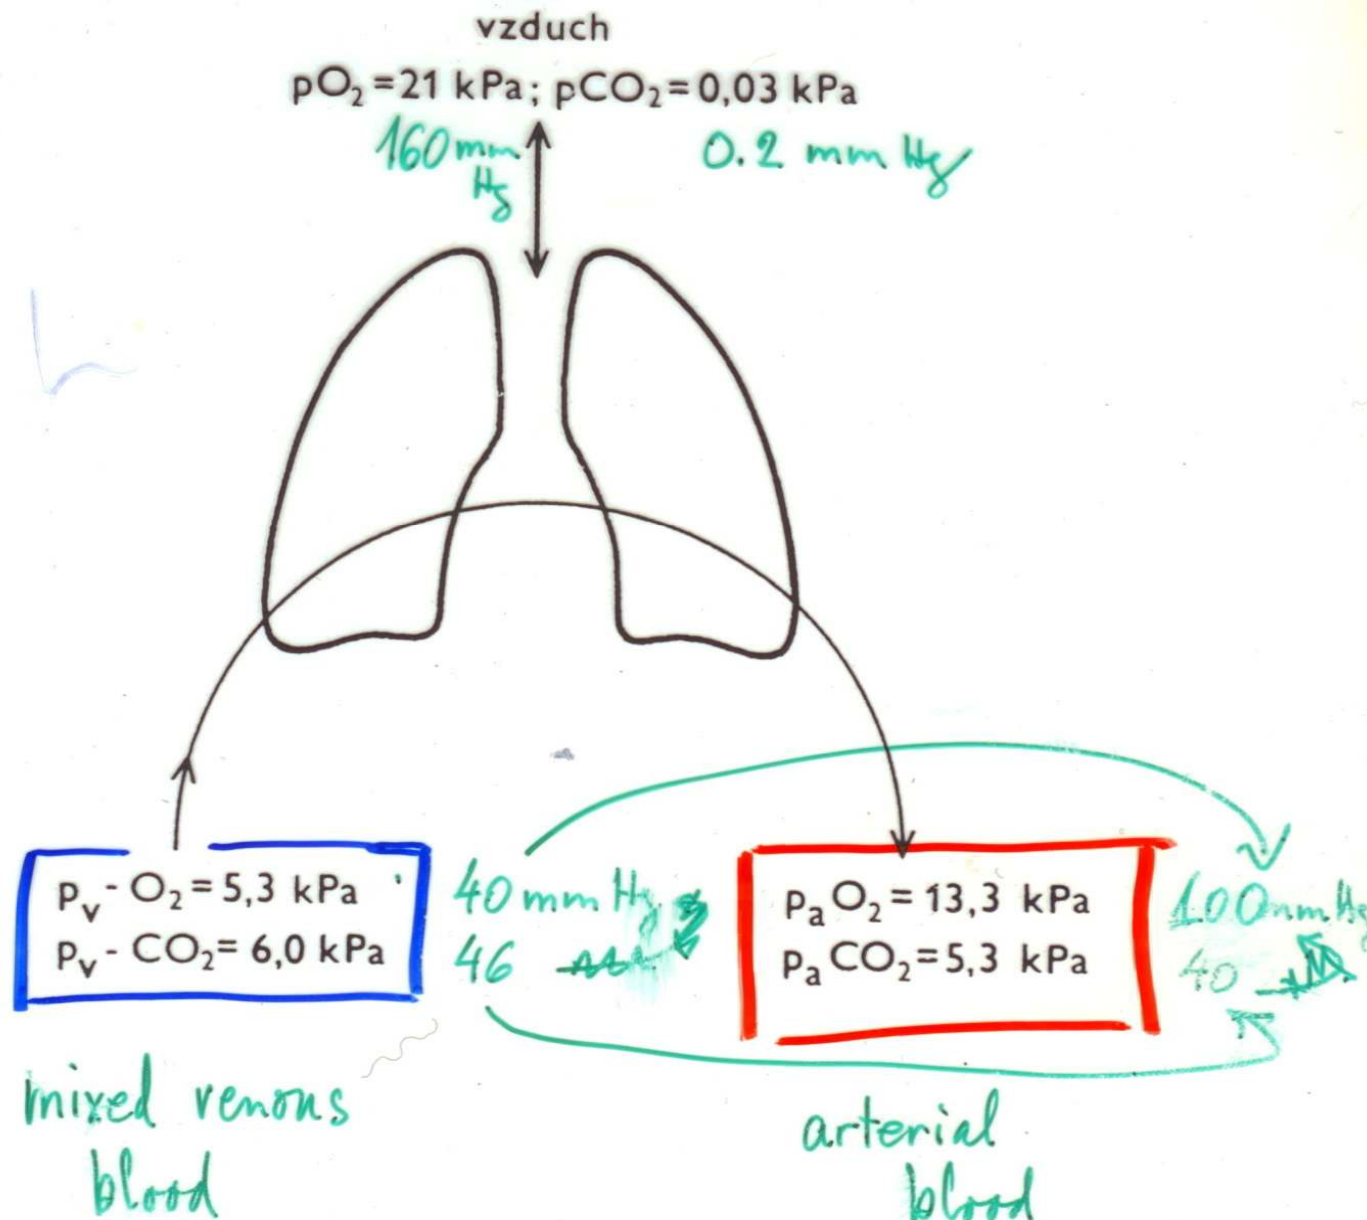 vzduch
pO₂=21 kPa; pCO₂=0,03 kPa
160 mm Hg
0.2 mm Hg
pᵥ- O₂= 5,3 kPa
pᵥ- CO₂= 6,0 kPa
40 mm Hg
46
pₐO₂= 13,3 kPa
pₐCO₂=5,3 kPa
100 mm Hg
40
mixed venous
blood
arterial
blood